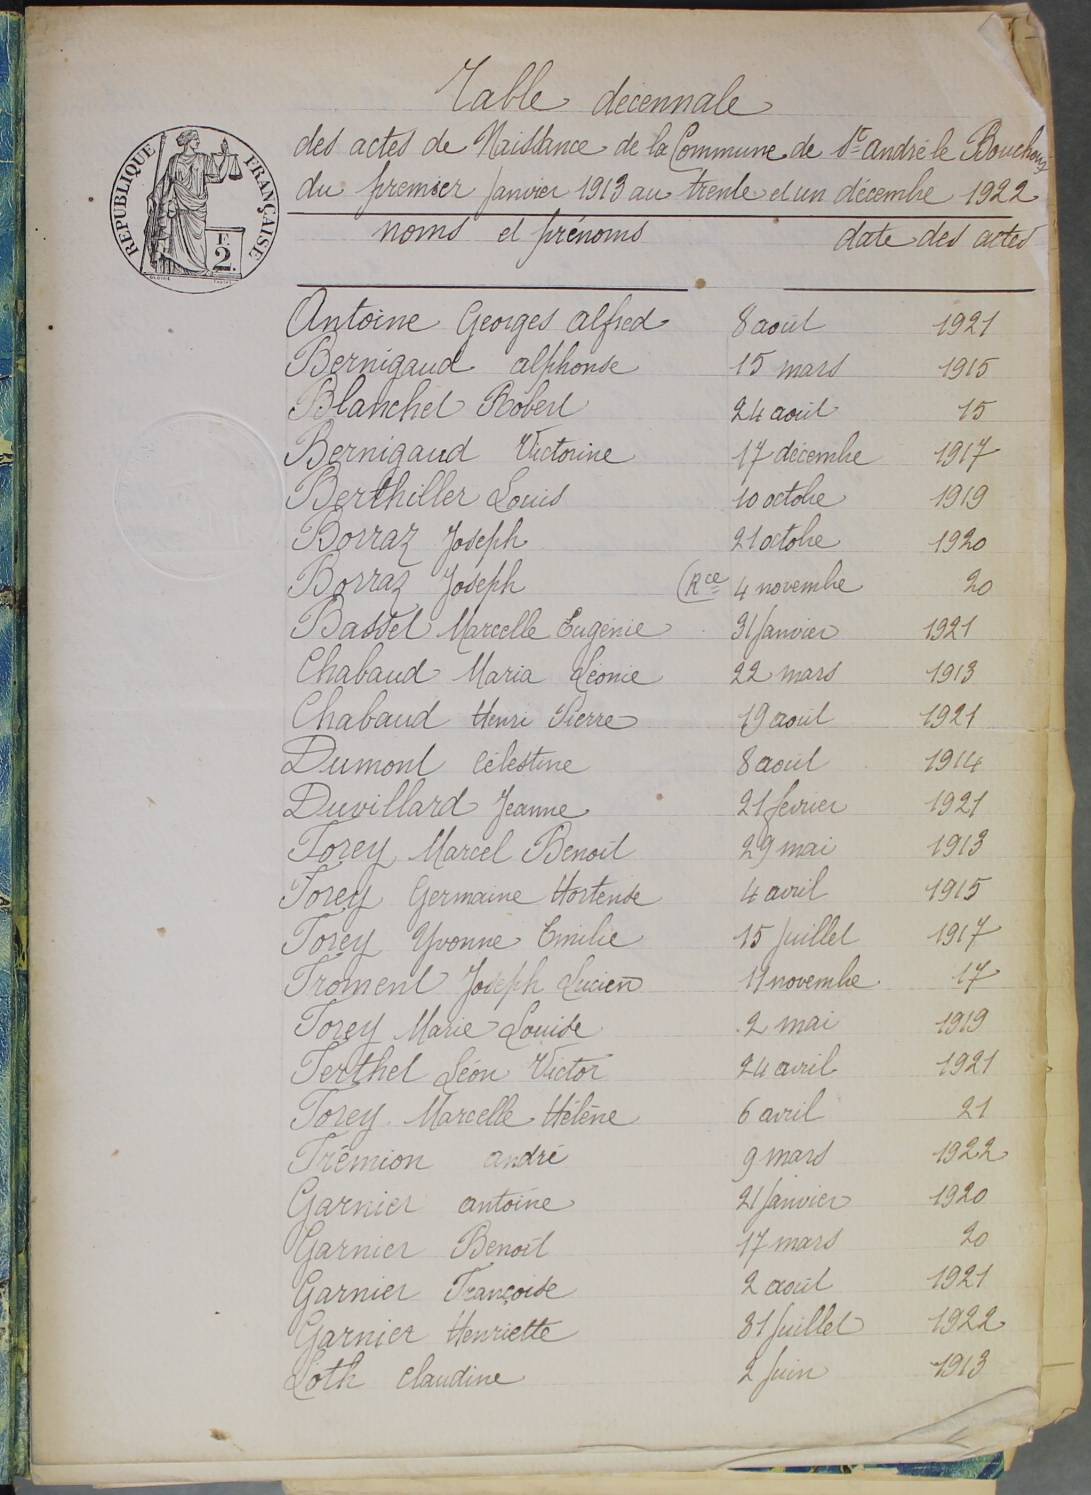 Table décennale
des actes de Naissance de la Commune de St andré le Bouchoux
du premier Janvier 1913 au trente et un décembre 1922
RÉPUBLIQUE FRANÇAISE
2F.
noms et prénoms date des actes
Antoine Georges alfred 8 août 1921
Bernigaud alphonse 15 mars 1915
Blanchet Robert 24 août 15
Bernigaud Victorine 17 décembre 1917
Berthiller Louis 10 octobre 1919
Borraz Joseph 21 octobre 1920
Borraz Joseph (Rce 4 novembre 20
Basset Marcelle Eugénie 31 Janvier 1921
Chabaud Maria Léonie 22 mars 1913
Chabaud Henri Pierre 19 août 1921
Dumont Célestine 8 août 1914
Duvillard Jeanne 21 février 1921
Forey Marcel Benoît 29 mai 1913
Forey Germaine Hortense 4 avril 1915
Forey Yvonne Emilie 15 Juillet 1917
Froment Joseph Lucien 11 novembre 17
Forey Marie Louise 2 mai 1919
Ferthet Léon Victor 24 avril 1921
Forey Marcelle Hélène 6 avril 21
Frémion andré 9 mars 1922
Garnier antoine 21 Janvier 1920
Garnier Benoît 17 mars 20
Garnier Françoise 2 août 1921
Garnier Henriette 31 Juillet 1922
Loth claudine 2 Juin 1913